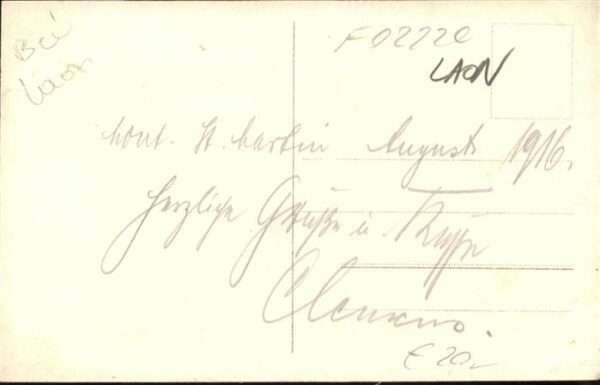 Bei
Laon
F02220
LAON
Mont. St. Martin August 1916.
Herzliche Grüße u. Küsse
Clemens.
€ 20.-